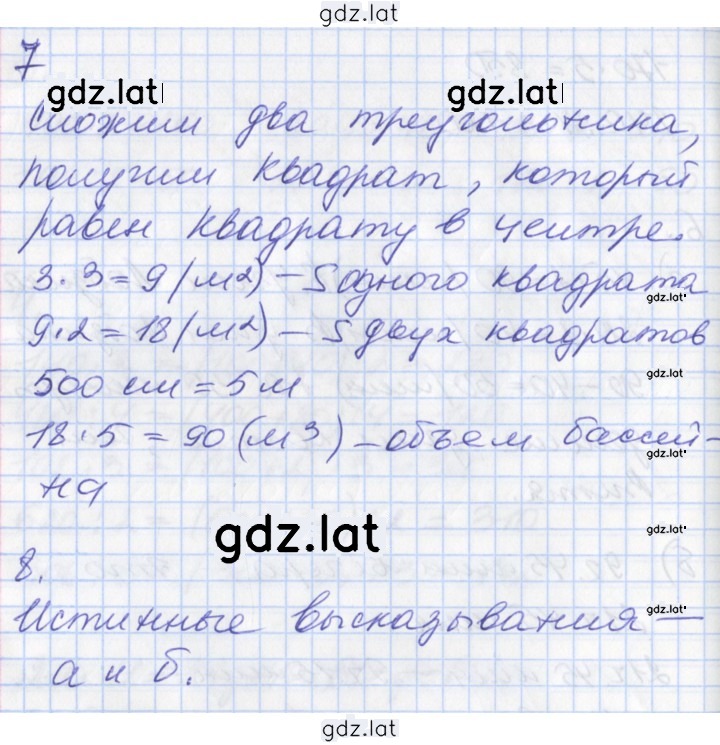 gdz.lat
7
gdz.lat gdz.lat
Сложим два треугольника,
получим квадрат, который
равен квадрату в центре.
3·3=9 (м²) – S одного квадрата
gdz.lat
9·2=18 (м²) – S двух квадратов
gdz.lat
500 см = 5 м
18·5 = 90 (м³) – объем бассей-
gdz.lat
на
gdz.lat
gdz.lat
8.
Истинные высказывания –
gdz.lat
а и б.
gdz.lat